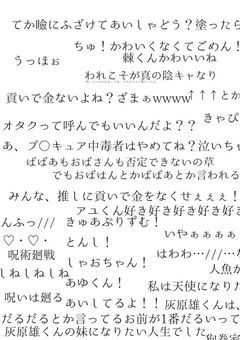 てか瞼にふざけてあいしゃどう？塗ったら
ちゅ！かわいくなくてごめん！
うっほぉ
棘くんかわいいね
われこそが真の陰キャなり
貢いで金ないよね？ざまぁwwww
↑↑↑とか
きゃぴ
オタクって呼んでもいいんだよ？？
あ、プ〇キュア中毒者はやめてね？泣いちゃ
ばばあもおばさんも否定できないの草
でもおばはんとかばばあとか言われる
みんな、推しに貢いで金をなくせぇぇぇ！
アユくん好き好き好き好き好き
んふっ///
きゅあぷりずむ！
♡・♡・
とんし！
いやぁぁぁぁ
呪術廻戦
しゃおちゃん！
はわわ…///…な
しねしねしね
あゆくん！
人魚か
私は天使になりた
呪いは廻る
あいしてるよ！！
灰原雄くんは、
だるだるとか言ってるお前が1番だるいって
灰原雄くんの妹になりたい人生でした